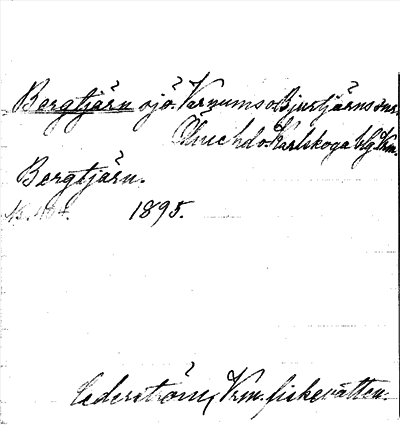 Bergtjärn sjö. Varnums o. Bjurtjärns snr.
Ölme hd o. Karlskoga blg Vrm.
Bergtjärn.
1895.
Cederström, Vrm. fiskevatten.